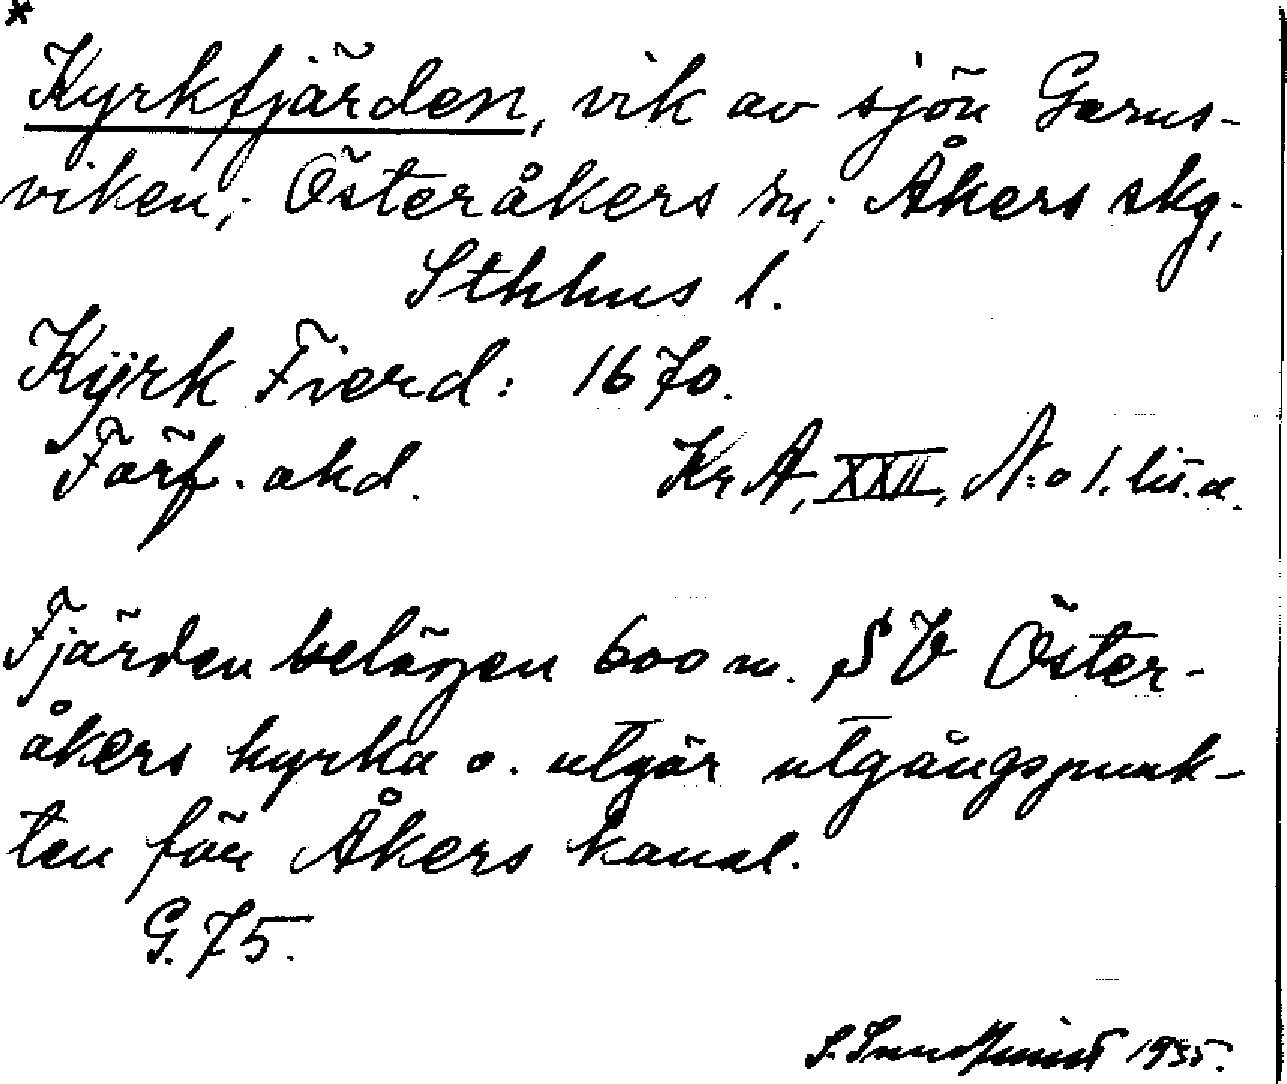 *
Kyrkfjärden, vik av sjön Garns-
viken; Österåkers sn; Åkers skg;
Sthlms l.
Kyrk Fierd: 1670.
Förf. okd. KrA, XXII, N:o 1. lit. a.
Fjärden belägen 600 m. SV Öster-
åkers kyrka o. utgör utgångspunk-
ten för Åkers kanal.
G. 75.
S. 1935.